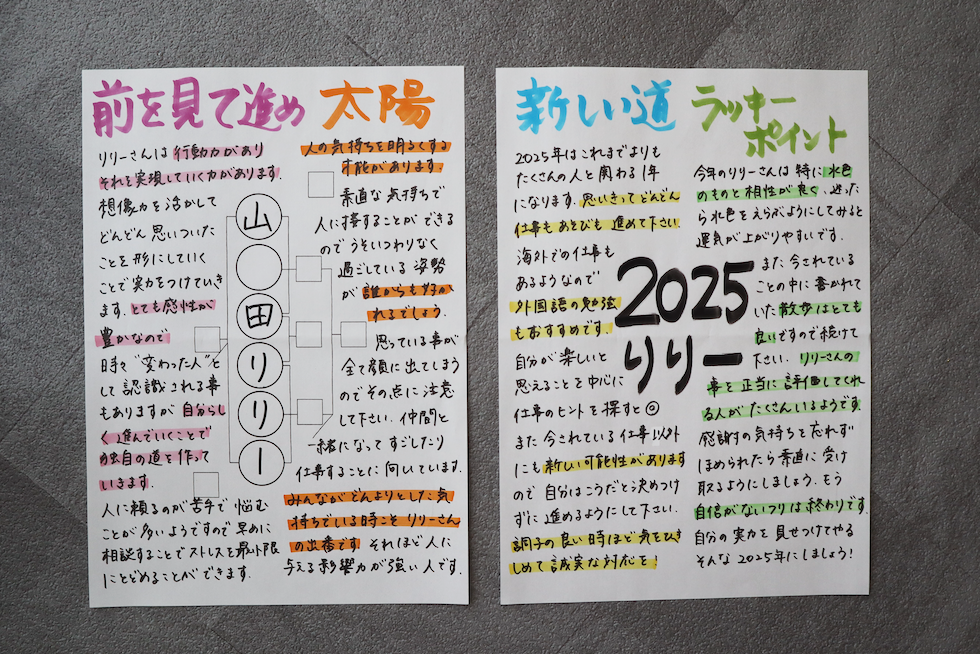 前を見て進め
リリーさんは行動力があり
それを実現していく力があります。
想像力を活かして
どんどん思いついた
ことを形にしていく
ことで実力をつけていき
ます。とても感性が
豊かなので
時々"変わった人"と
して認識される事
もありますが自分らし
く進んでいくことで
独自の道を作って
いきます。
人に頼るのが苦手で悩む
ことが多いようですので早めに
相談することでストレスを最小限
にとどめることができます。
山
田
リ
リ
ー
太陽
人の気持ちを明るくする
才能があります。
素直な気持ちで
人に接することができる
のでうそいつわりなく
過ごしている姿勢
が誰からも好か
れるでしょう。
思っている事が
全て顔に出てしまう
のでその点に注意
して下さい。仲間と
一緒になってすごしたり
仕事することに向いています。
みんながどんよりとした気
持ちでいる時こそリリーさん
の出番です。それほど人に
与える影響力が強い人です。
新しい道
2025年はこれまでよりも
たくさんの人と関わる1年
になります。思いきってどんどん
仕事もあそびも進めて下さい。
海外での仕事も
あるようなので
外国語の勉強
もおすすめです。
自分が楽しいと
思えることを中心に
仕事のヒントを探すと◎
また今されている仕事以外
にも新しい可能性があります
ので自分はこうだと決めつけ
ずに進めるようにして下さい。
調子の良い時ほど気をひき
しめて誠実な対応を!
2025
リリー
ラッキー
ポイント
今年のリリーさんは特に水色
のものと相性が良く、迷った
ら水色をえらがようにしてみると
運気が上がりやすいです。
また今されている
ことの中に書かれて
いた散歩はとても
良いですので続けて
下さい。リリーさんの
事を正当に評価してくれ
る人がたくさんいるようです。
感謝の気持ちを忘れず
ほめられたら素直に受け
取るようにしましょう。もう
自信がないフリは終わりです。
自分の実力を見せつけてやる
そんな2025年にしましょう!